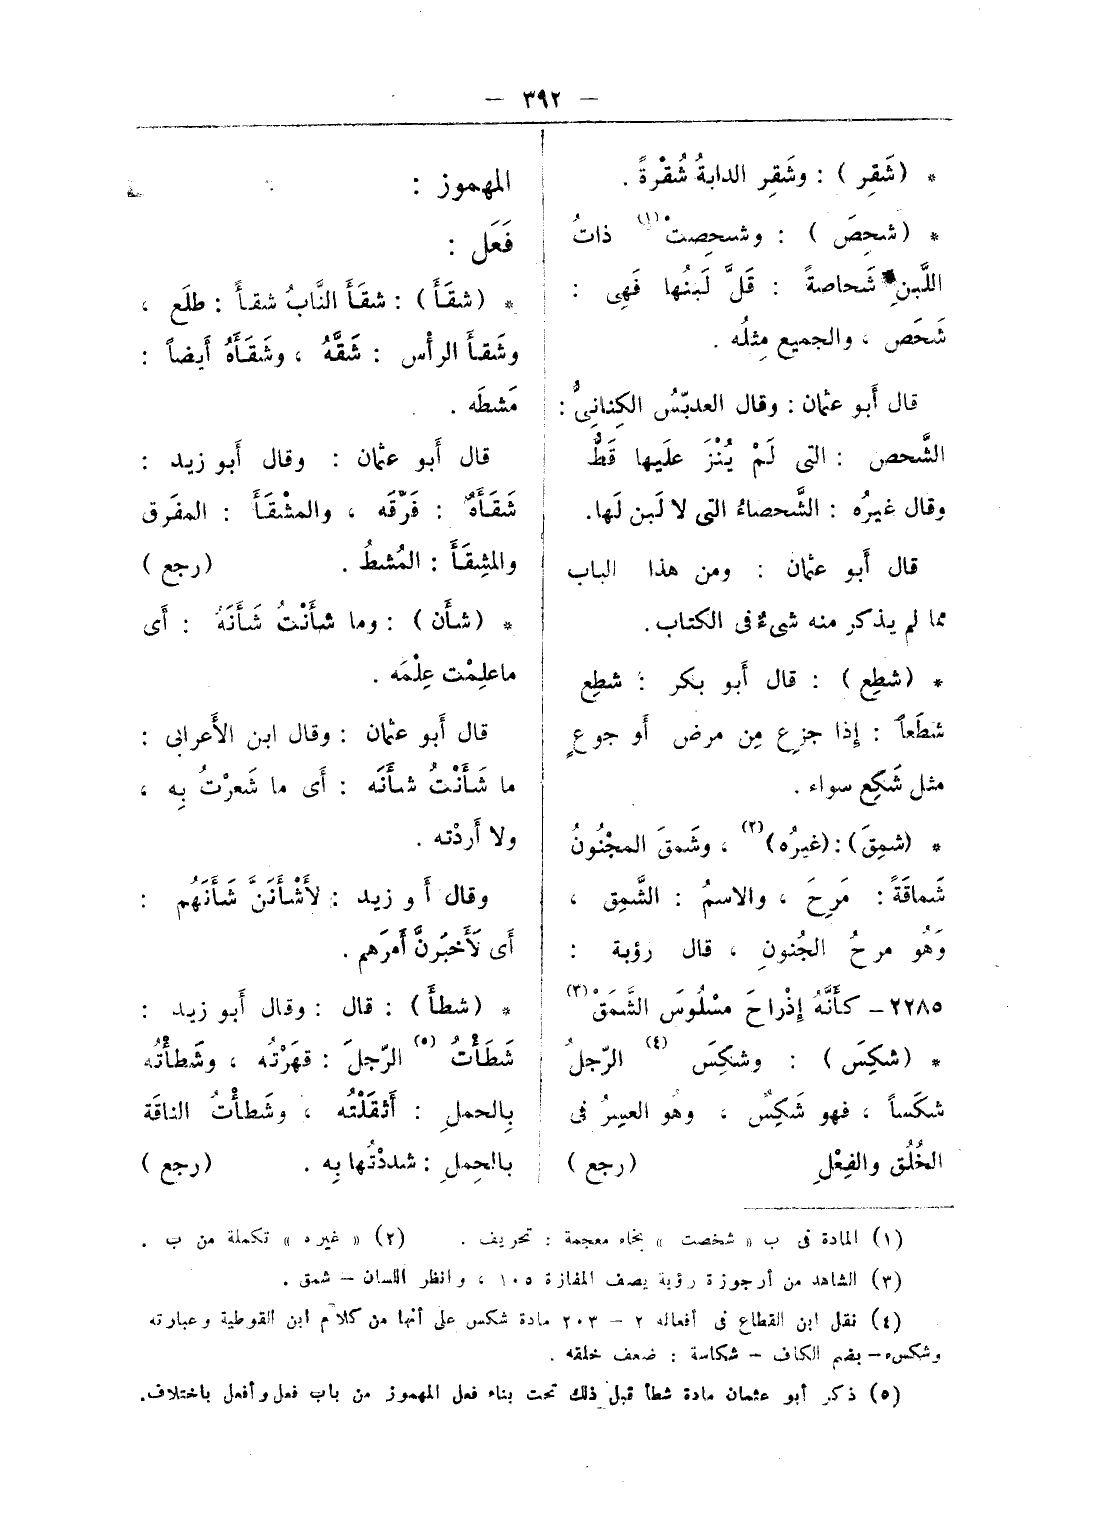 — ٣٩٢ —
* (شَقِر) : وشَقِر الدابةُ شُقْرةً .
* (شحِصَ) : وشحِصتْ(١) ذاتُ
اللَّبنِ شَحاصةً : قَلَّ لَبنُها فَهِى :
شَحَص ، والجميع مِثلُه .
قال أَبو عثمان : وقال العدبّسُ الكِنانِىُّ :
الشَّحص : التى لَمْ يُنْزَ علَيها قَطُّ
وقال غيرُه : الشَّحصاءُ التى لا لَبن لَها.
قال أَبو عثمان : ومن هذا الباب
مما لم يذكر منه شىءٌ فى الكتاب.
* (شطِع) : قال أَبو بكر : شطِع
شطَعاً : إِذا جزِع مِن مرض أَو جوعٍ
مثل شَكِع سواء .
* (شمِقَ) : (غيرُه)(٢) ، وشَمقَ المجْنُونُ
شَماقَةً : مَرِحَ ، والاسمُ : الشَّمِق ،
وَهُو مرحُ الجُنونِ ، قال رؤبة :
٢٢٨٥ – كأَنَّهُ إِذْراحَ مسْلُوسَ الشَّمَقْ(٣)
* (شكِسَ) : وشكِسَ(٤) الرّجلُ
شكَساً ، فهو شَكِسٌ ، وهُو العسِرُ فى
الخُلُق والفِعْلِ (رجع)
المهموز :
فَعَل :
* (شقأَ) : شقأَ النَّابُ شقأً : طلَع ،
وشَقأَ الرأْس : شَقَّهُ ، وشَقَأَهُ أَيضاً :
مَشطَه .
قال أَبو عثمان : وقال أَبو زيد :
شَقَأَهُ : فَرّقَه ، والمشْقَأَ : المفَرق
والمشِقَأَ : المُشطُ . (رجع)
* (شأَن) : وما شأَنْتُ شَأَنَهُ : أَى
ماعلِمْت عِلْمَه .
قال أَبو عثمان : وقال ابن الأَعرابى :
ما شَأَنْتُ شأَنَه : أَى ما شَعرْتُ بِه ،
ولا أَردْته .
وقال أَ و زيد : لأَشْأَنَنَّ شَأَنَهُم :
أَى لَأَخبَرنَّ أَمرَهم .
* (شطأَ) : قال : وقال أَبو زيد :
شَطَأْتُ(٥) الرّجلَ : قهَرْتُه ، وشَطأْتُه
بِالحملِ : أَثقَلْتُه ، وشَطأْتُ الناقَة
بالحِملِ : شددْتُها بِه . (رجع)
(١) المادة فى ب « شخصت » بخاء معجمة : تحريف . (٢) « غيره » تكملة من ب .
(٣) الشاهد من أرجوزة رؤبة يصف المفازة ١٠٥ ، وانظر اللسان – شمق .
(٤) نقل ابن القطاع فى أفعاله ٢ – ٢٠٣ مادة شكس على أنها من كلام ابن القوطية وعبارته
وشكسه – بضم الكاف – شكاسة : ضعف خلقه .
(٥) ذكر أبو عثمان مادة شطأ قبل ذلك تحت بناء فعل المهموز من باب فعل وأفعل باختلاف.